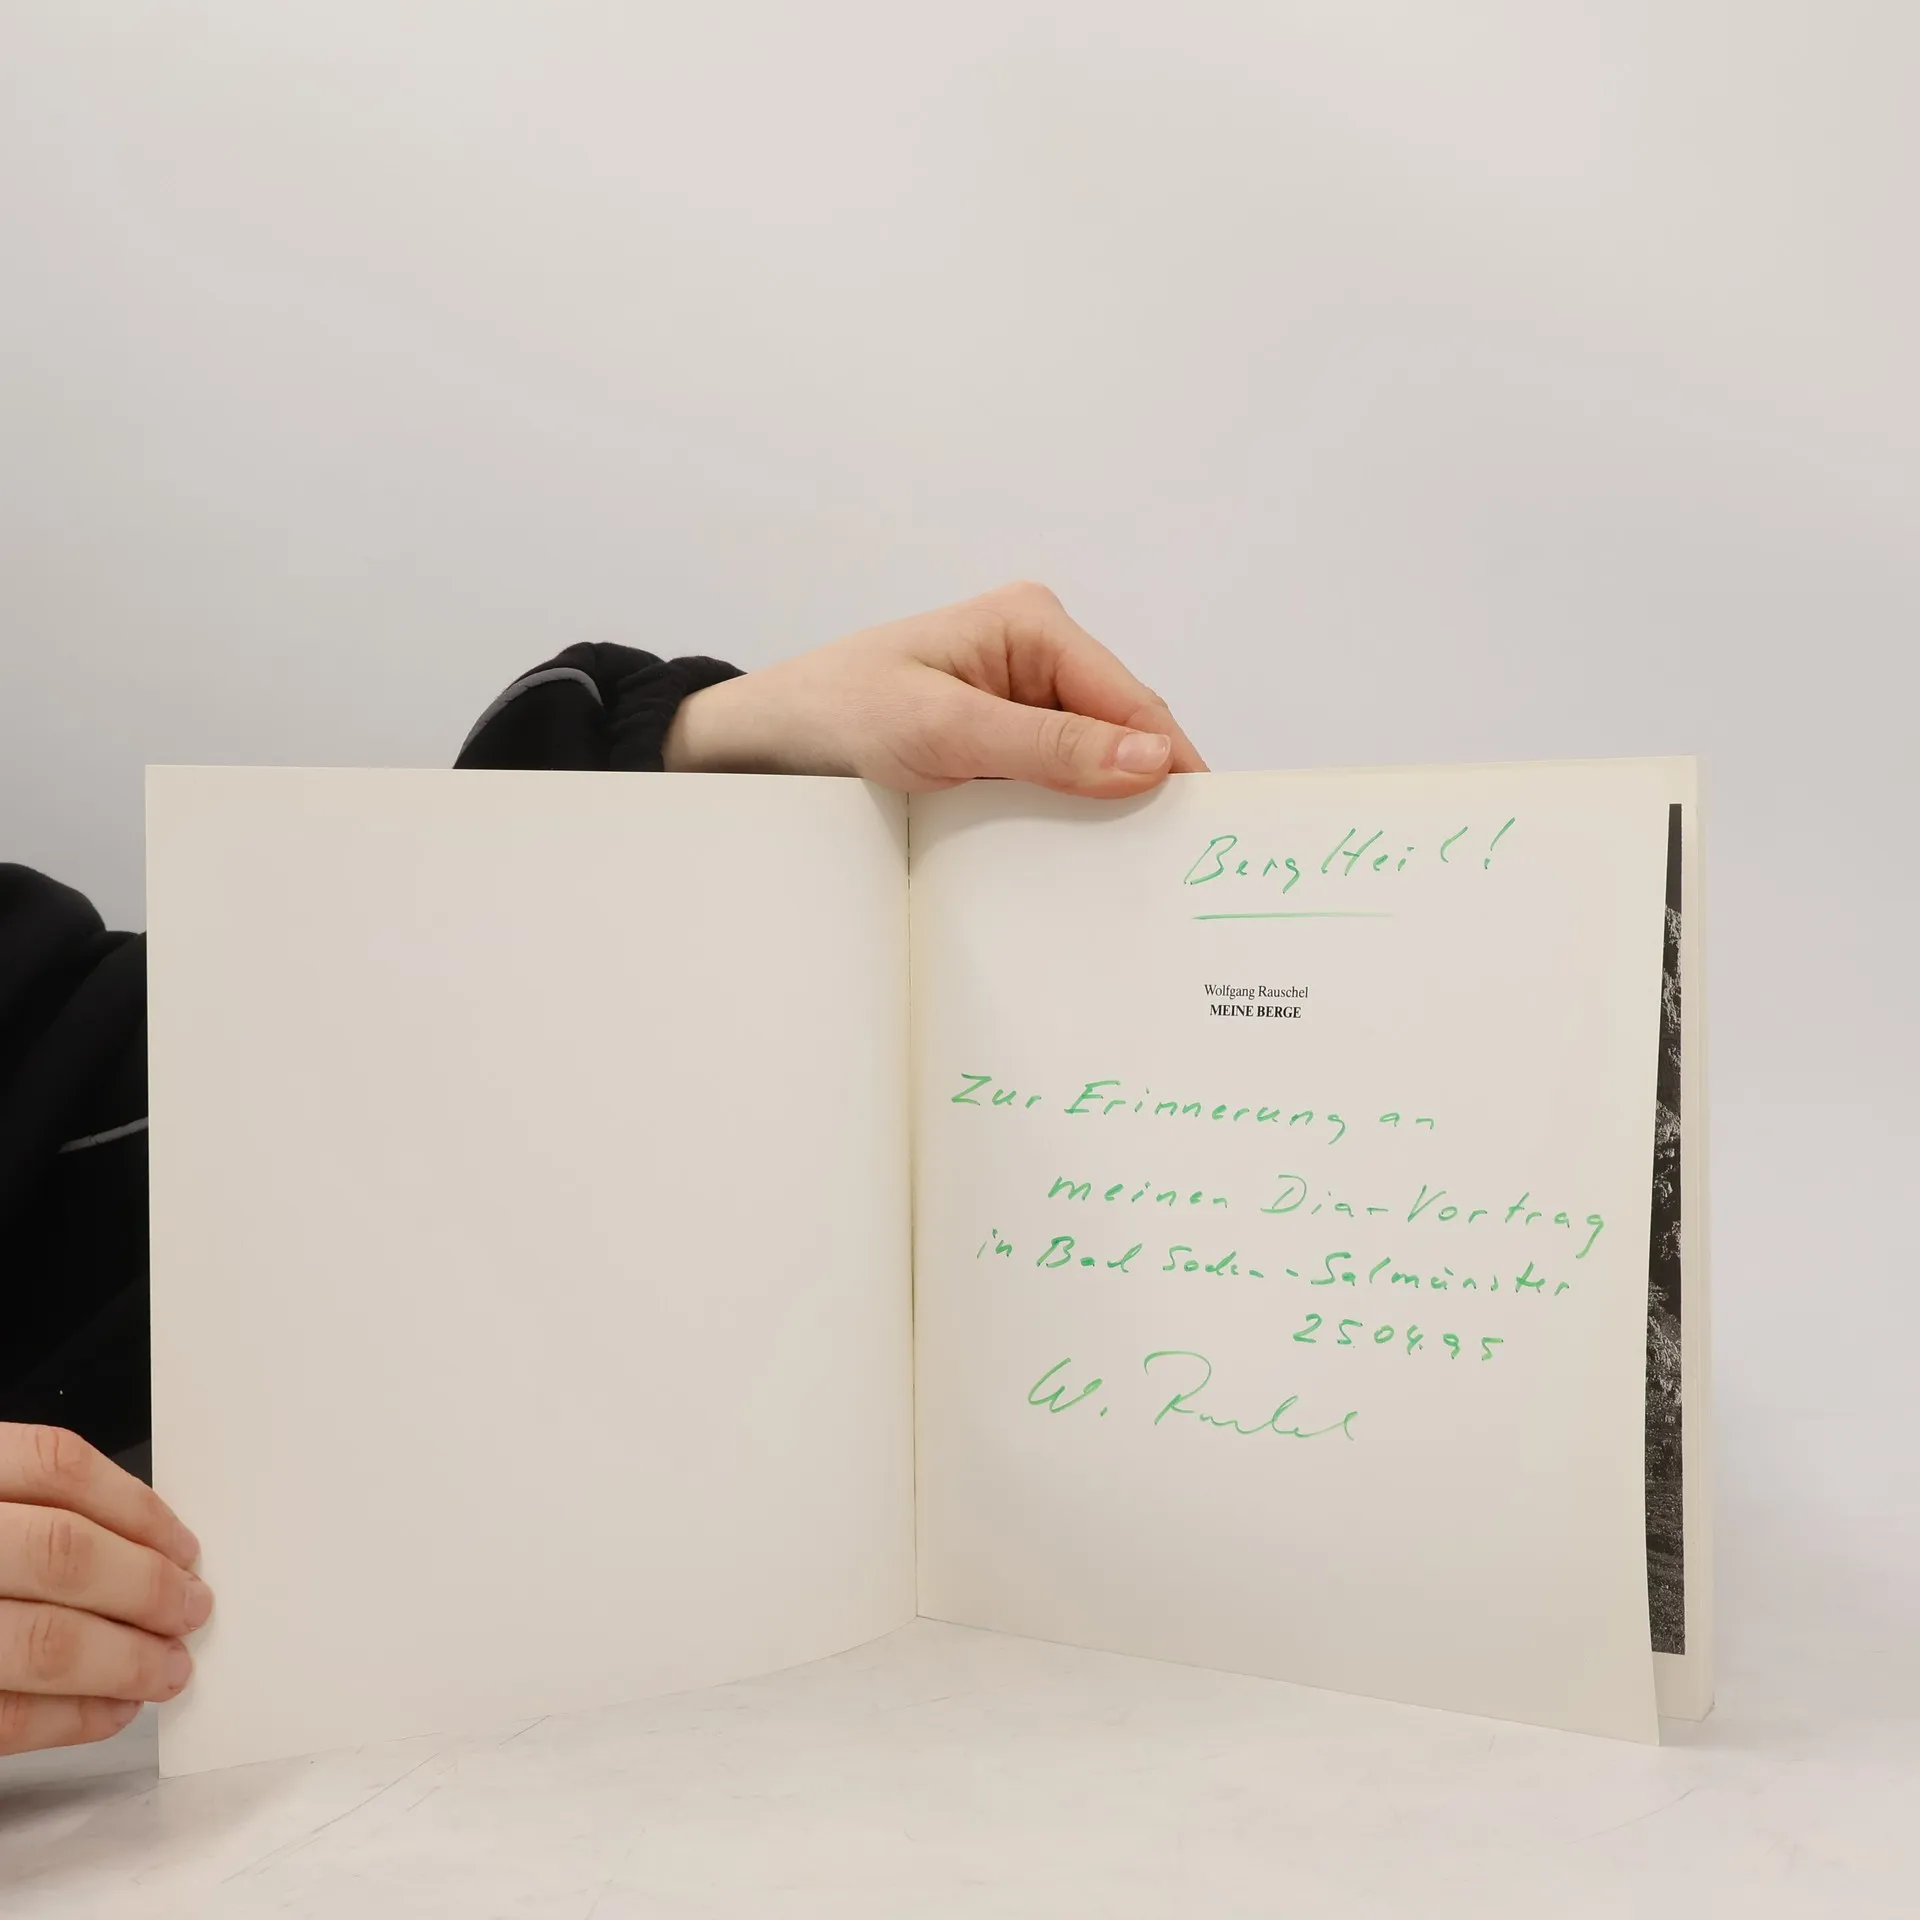 Berg Heil!
Wolfgang Rauschel
MEINE BERGE
Zur Erinnerung an
meinen Dia-Vortrag
in Bad Soden-Salmünster
25.04.95
W. Rauschel